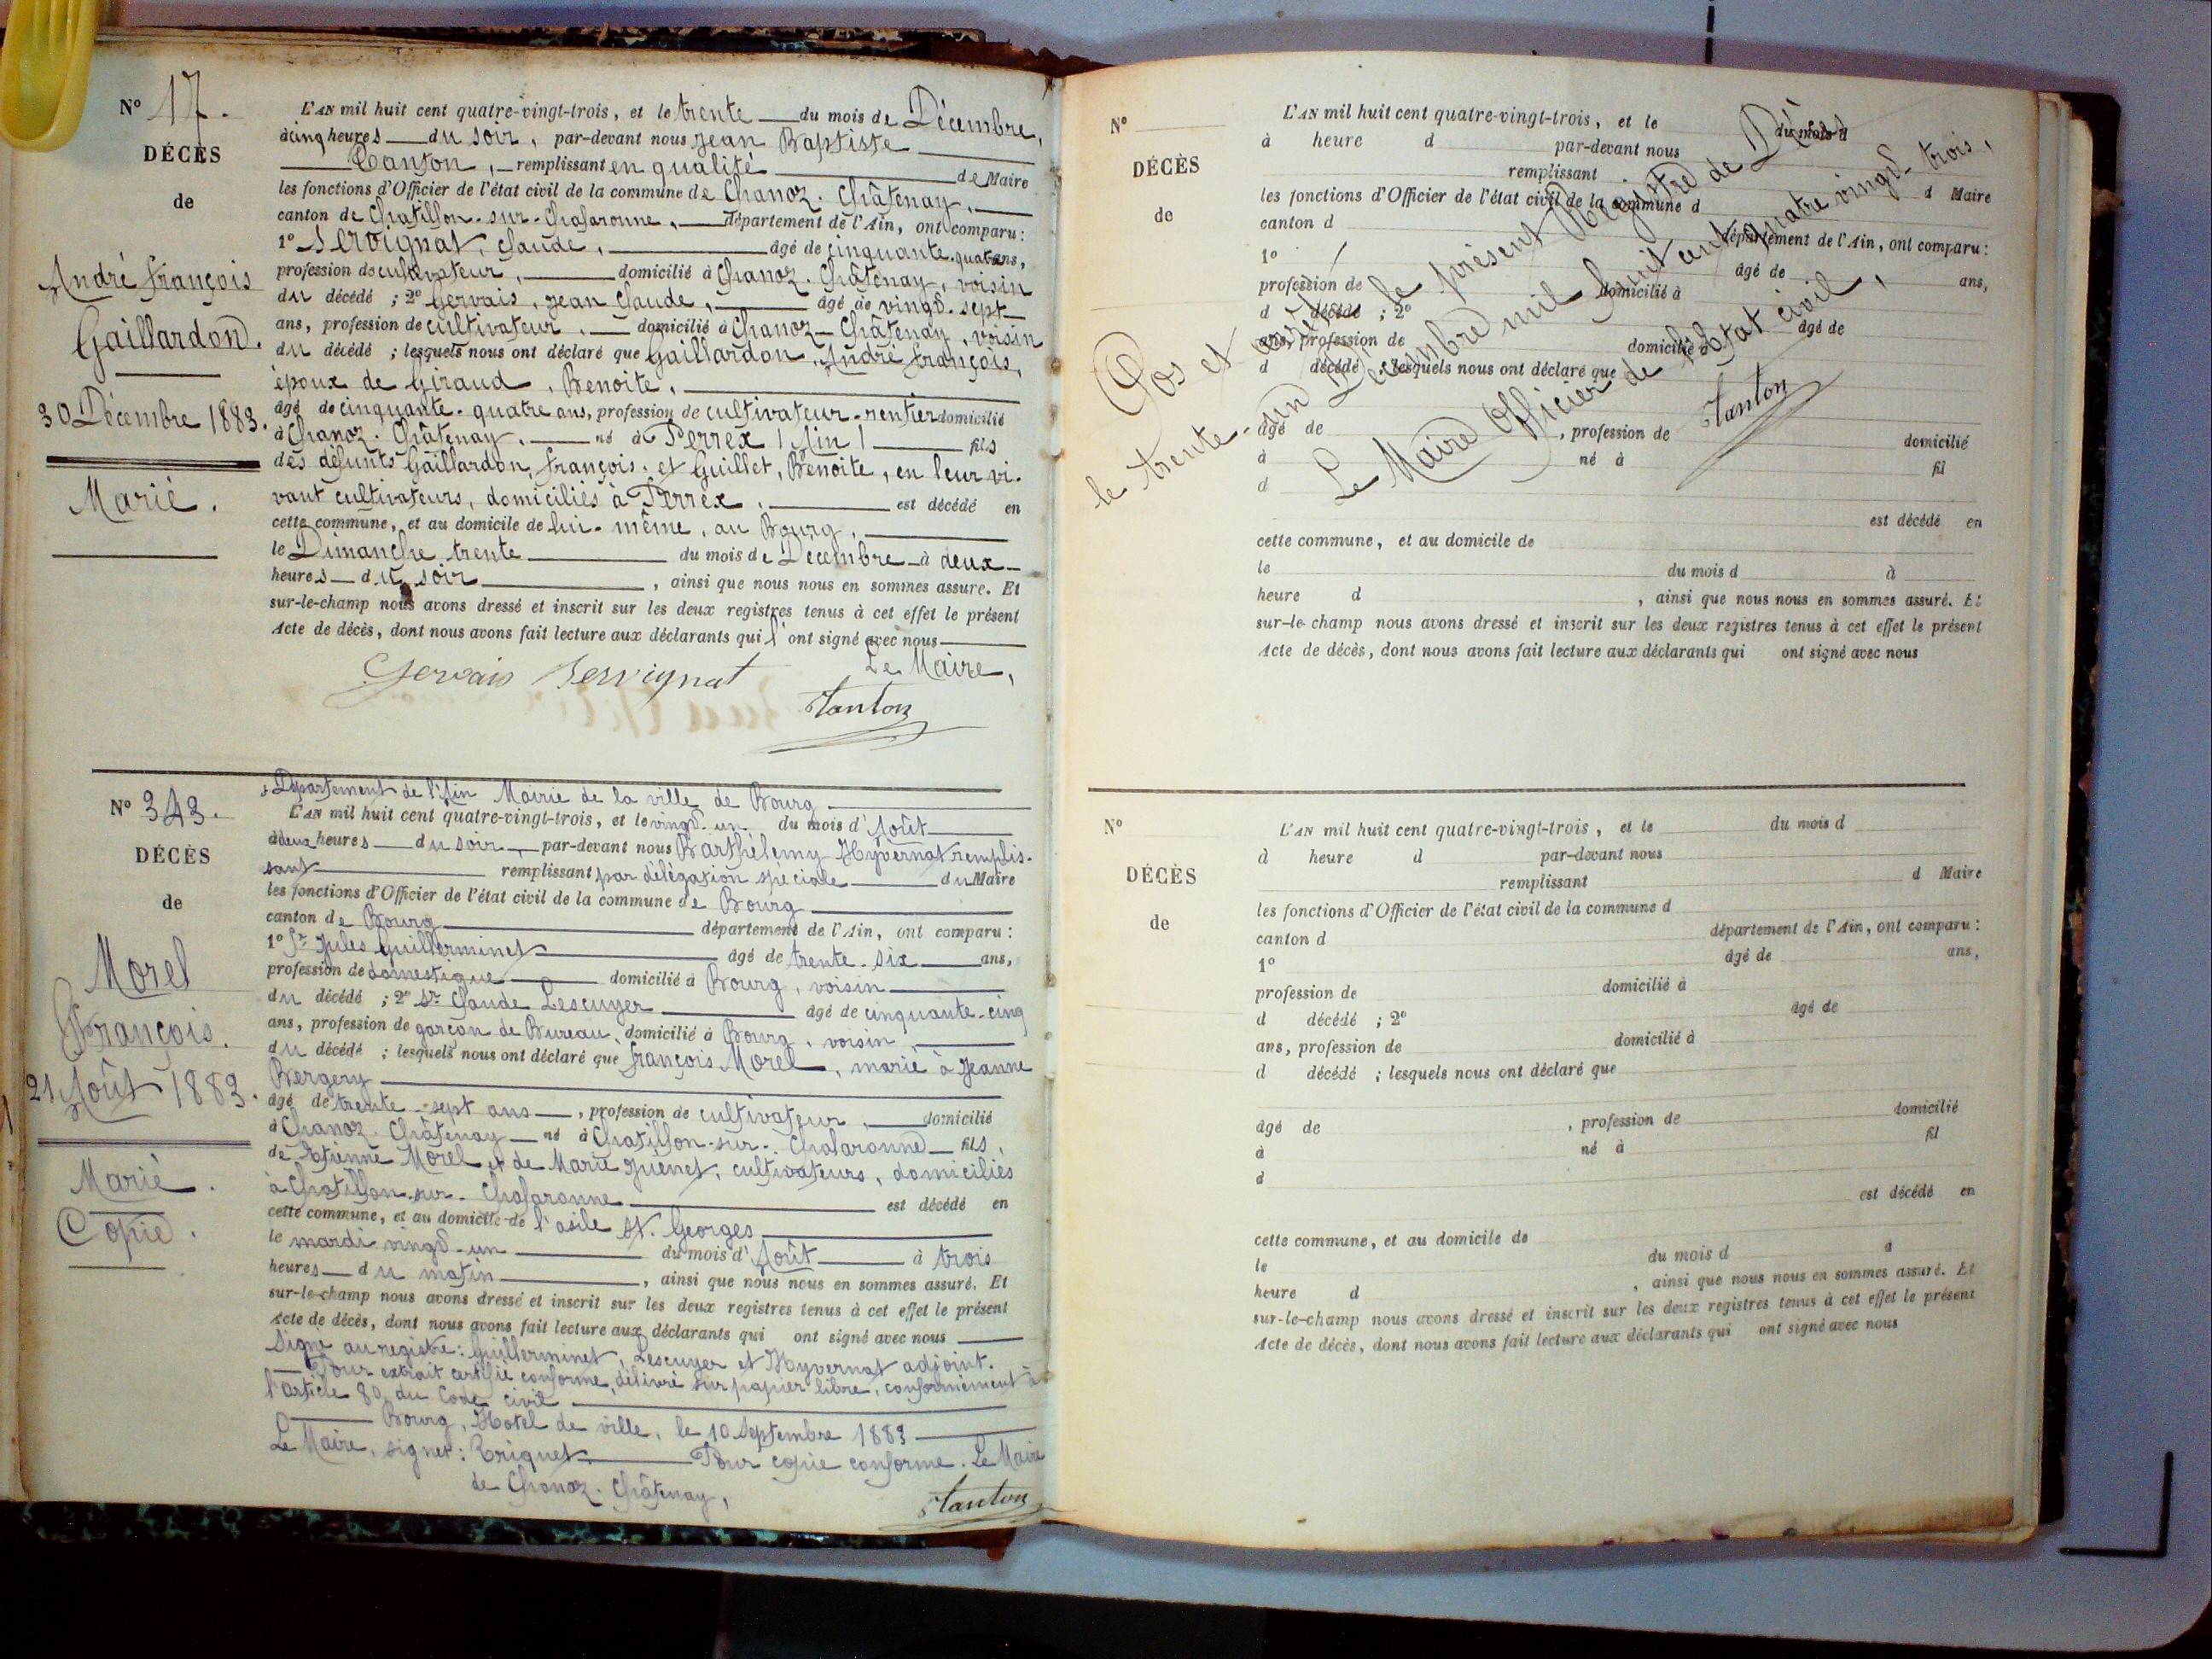 N° 17.
DÉCÈS
de
André François
Gaillardon.
30 Décembre 1883.
Marié.
L'AN mil huit cent quatre-vingt-trois, et le trente du mois de Décembre,
à cinq heures du soir, par-devant nous Jean Baptiste
Tanton, remplissant en qualité de Maire
les fonctions d'Officier de l'état civil de la commune de Chanoz-Châtenay,
canton de Chatillon-sur-Chalaronne, département de l'Ain, ont comparu :
1° Servignat, Claude, âgé de cinquante-quatre ans,
profession de cultivateur, domicilié à Chanoz-Châtenay, voisin
du décédé ; 2° Gervais, Jean Claude, âgé de vingt-sept
ans, profession de cultivateur, domicilié à Chanoz-Châtenay, voisin
du décédé ; lesquels nous ont déclaré que Gaillardon, André François,
époux de Giraud, Benoite,
âgé de cinquante-quatre ans, profession de cultivateur-rentier domicilié
à Chanoz-Châtenay, né à Perrex (Ain) fils
des défunts Gaillardon, François et Guillet, Benoite, en leur vi-
vant cultivateurs, domiciliés à Perrex, est décédé en
cette commune, et au domicile de lui-même, au Bourg,
le Dimanche trente du mois de Décembre à deux
heures du soir, ainsi que nous nous en sommes assuré. Et
sur-le-champ nous avons dressé et inscrit sur les deux registres tenus à cet effet le présent
Acte de décès, dont nous avons fait lecture aux déclarants qui l'ont signé avec nous
Le Maire,
Gervais Servignat
Tanton
N° 343.
DÉCÈS
de
Morel
François.
21 Août 1883.
Marié.
Copie.
Département de l'Ain Mairie de la ville de Bourg
L'AN mil huit cent quatre-vingt-trois, et le vingt-un du mois d'Août
à deux heures du soir, par-devant nous Barthélemy Hyvernat remplis-
sant remplissant par délégation spéciale du Maire
les fonctions d'Officier de l'état civil de la commune de Bourg
canton de Bourg département de l'Ain, ont comparu :
1° Sr Jules Guillerminet âgé de trente-six ans,
profession de domestique domicilié à Bourg, voisin
du décédé ; 2° Sr Claude Lescuyer âgé de cinquante-cinq
ans, profession de garçon de Bureau, domicilié à Bourg, voisin,
du décédé ; lesquels nous ont déclaré que François Morel, marié à Jeanne
Bergery
âgé de trente-sept ans, profession de cultivateur, domicilié
à Chanoz-Châtenay né à Chatillon-sur-Chalaronne fils,
de Etienne Morel et de Marie Guenet, cultivateurs, domiciliés
à Chatillon-sur-Chalaronne est décédé en
cette commune, et au domicile de l'asile St. Georges
le mardi vingt-un du mois d'Août à trois
heures du matin, ainsi que nous nous en sommes assuré. Et
sur-le-champ nous avons dressé et inscrit sur les deux registres tenus à cet effet le présent
Acte de décès, dont nous avons fait lecture aux déclarants qui ont signé avec nous
Signé au registre : Guillerminet, Lescuyer et Hyvernat adjoint.
Pour extrait certifié conforme, délivré sur papier libre, conformément à
l'article 80 du Code civil
Bourg, Hotel de ville, le 10 Septembre 1883
Le Maire, signer : Triquet. Pour copie conforme. Le Maire
de Chanoz-Châtenay,
Tanton
N°
DÉCÈS
de
L'AN mil huit cent quatre-vingt-trois, et le du mois d
à heure d par-devant nous
remplissant d Maire
les fonctions d'Officier de l'état civil de la commune d
canton d département de l'Ain, ont comparu :
1° âgé de ans,
profession de domicilié à
d décédé ; 2° âgé de
ans, profession de domicilié à
d décédé ; lesquels nous ont déclaré que
âgé de , profession de domicilié
à né à fil
d
est décédé en
cette commune, et au domicile de
le du mois d à
heure d , ainsi que nous nous en sommes assuré. Et
sur-le-champ nous avons dressé et inscrit sur les deux registres tenus à cet effet le présent
Acte de décès, dont nous avons fait lecture aux déclarants qui ont signé avec nous
Clos et arrêté le présent Registre de Décès
le trente-un Décembre mil huit cent quatre vingt-trois,
Le Maire Officier de l'Etat civil,
Tanton
N°
DÉCÈS
de
L'AN mil huit cent quatre-vingt-trois, et le du mois d
à heure d par-devant nous
remplissant d Maire
les fonctions d'Officier de l'état civil de la commune d
canton d département de l'Ain, ont comparu :
1° âgé de ans,
profession de domicilié à
d décédé ; 2° âgé de
ans, profession de domicilié à
d décédé ; lesquels nous ont déclaré que
âgé de , profession de domicilié
à né à fil
d
est décédé en
cette commune, et au domicile de
le du mois d à
heure d , ainsi que nous nous en sommes assuré. Et
sur-le-champ nous avons dressé et inscrit sur les deux registres tenus à cet effet le présent
Acte de décès, dont nous avons fait lecture aux déclarants qui ont signé avec nous